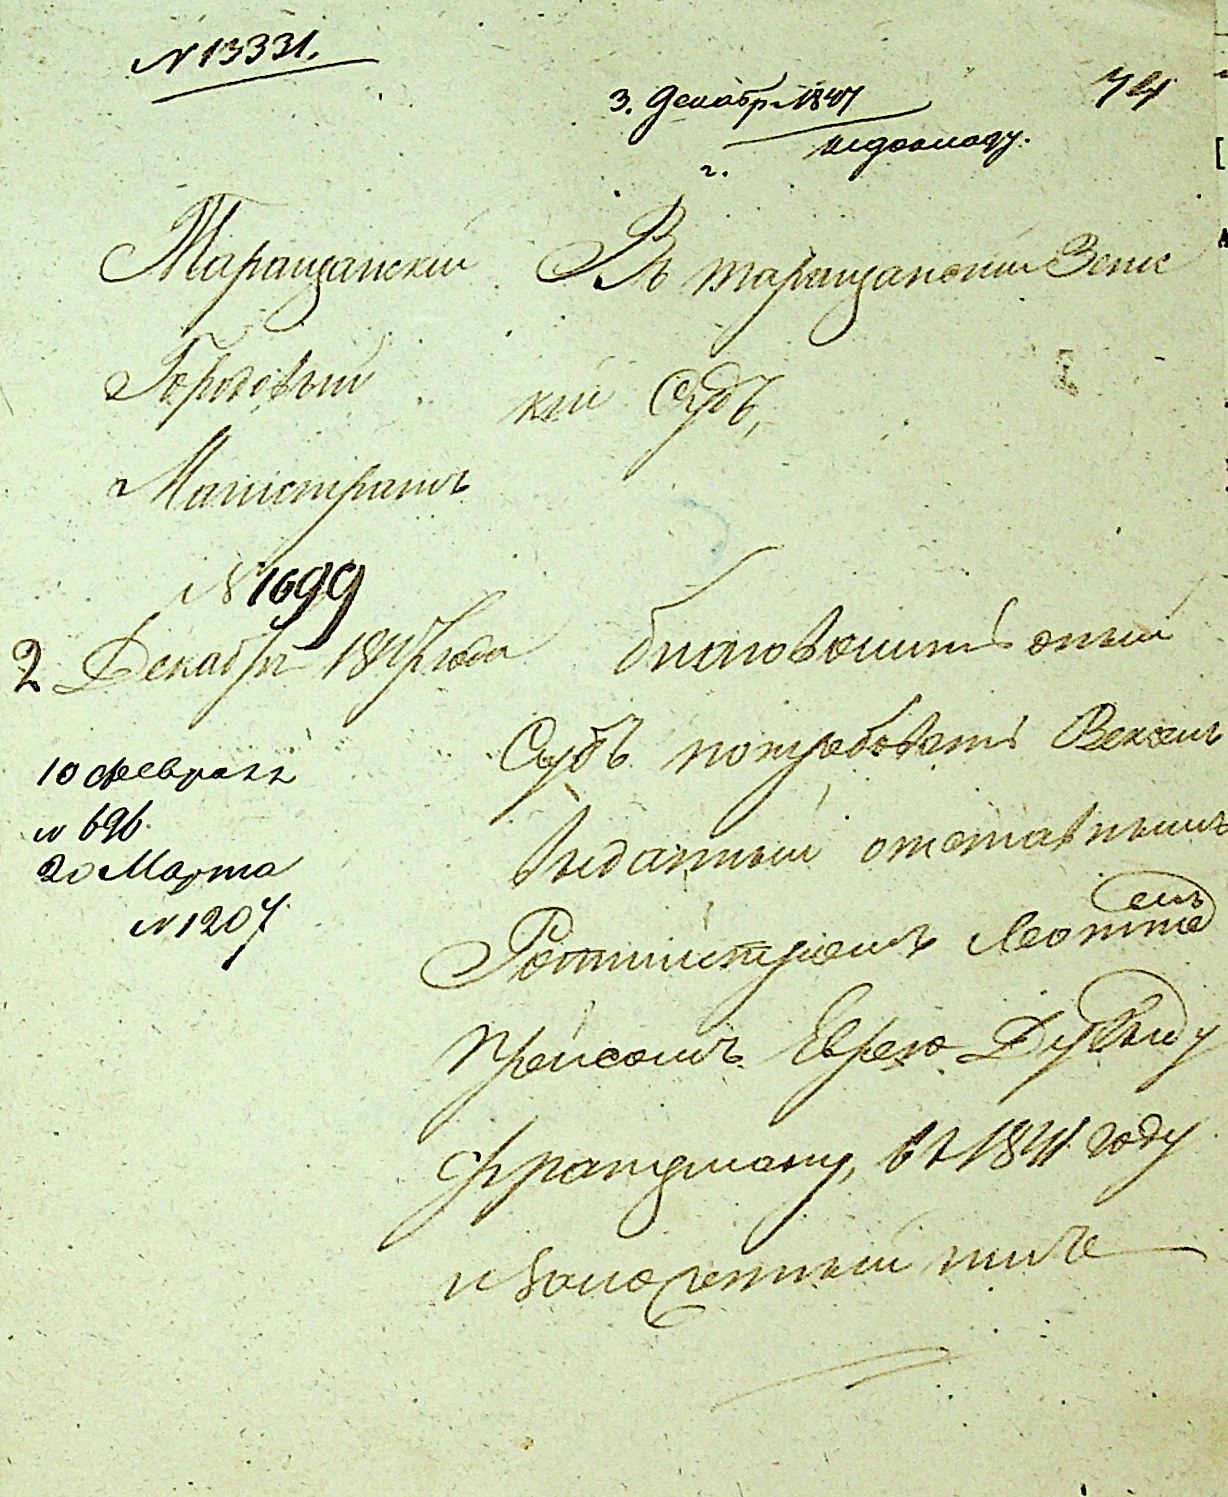 № 13331.
3. Декабр. 1847
74
г. къ докладу.
Таращанскій
Городовый
Магистратъ
№ 1699
2 Декабря 1847 года
10 февраля
№ 696.
20 Марта
№ 1207
Въ таращанскій Земс
кій Судъ,
благоволитъ оный
Судъ потребовать Вексель
выданный отставнымъ
Ротмистромъ Леонте
емъ
Прейсомъ Еврею Дувиду
Франдману, въ 1841 году